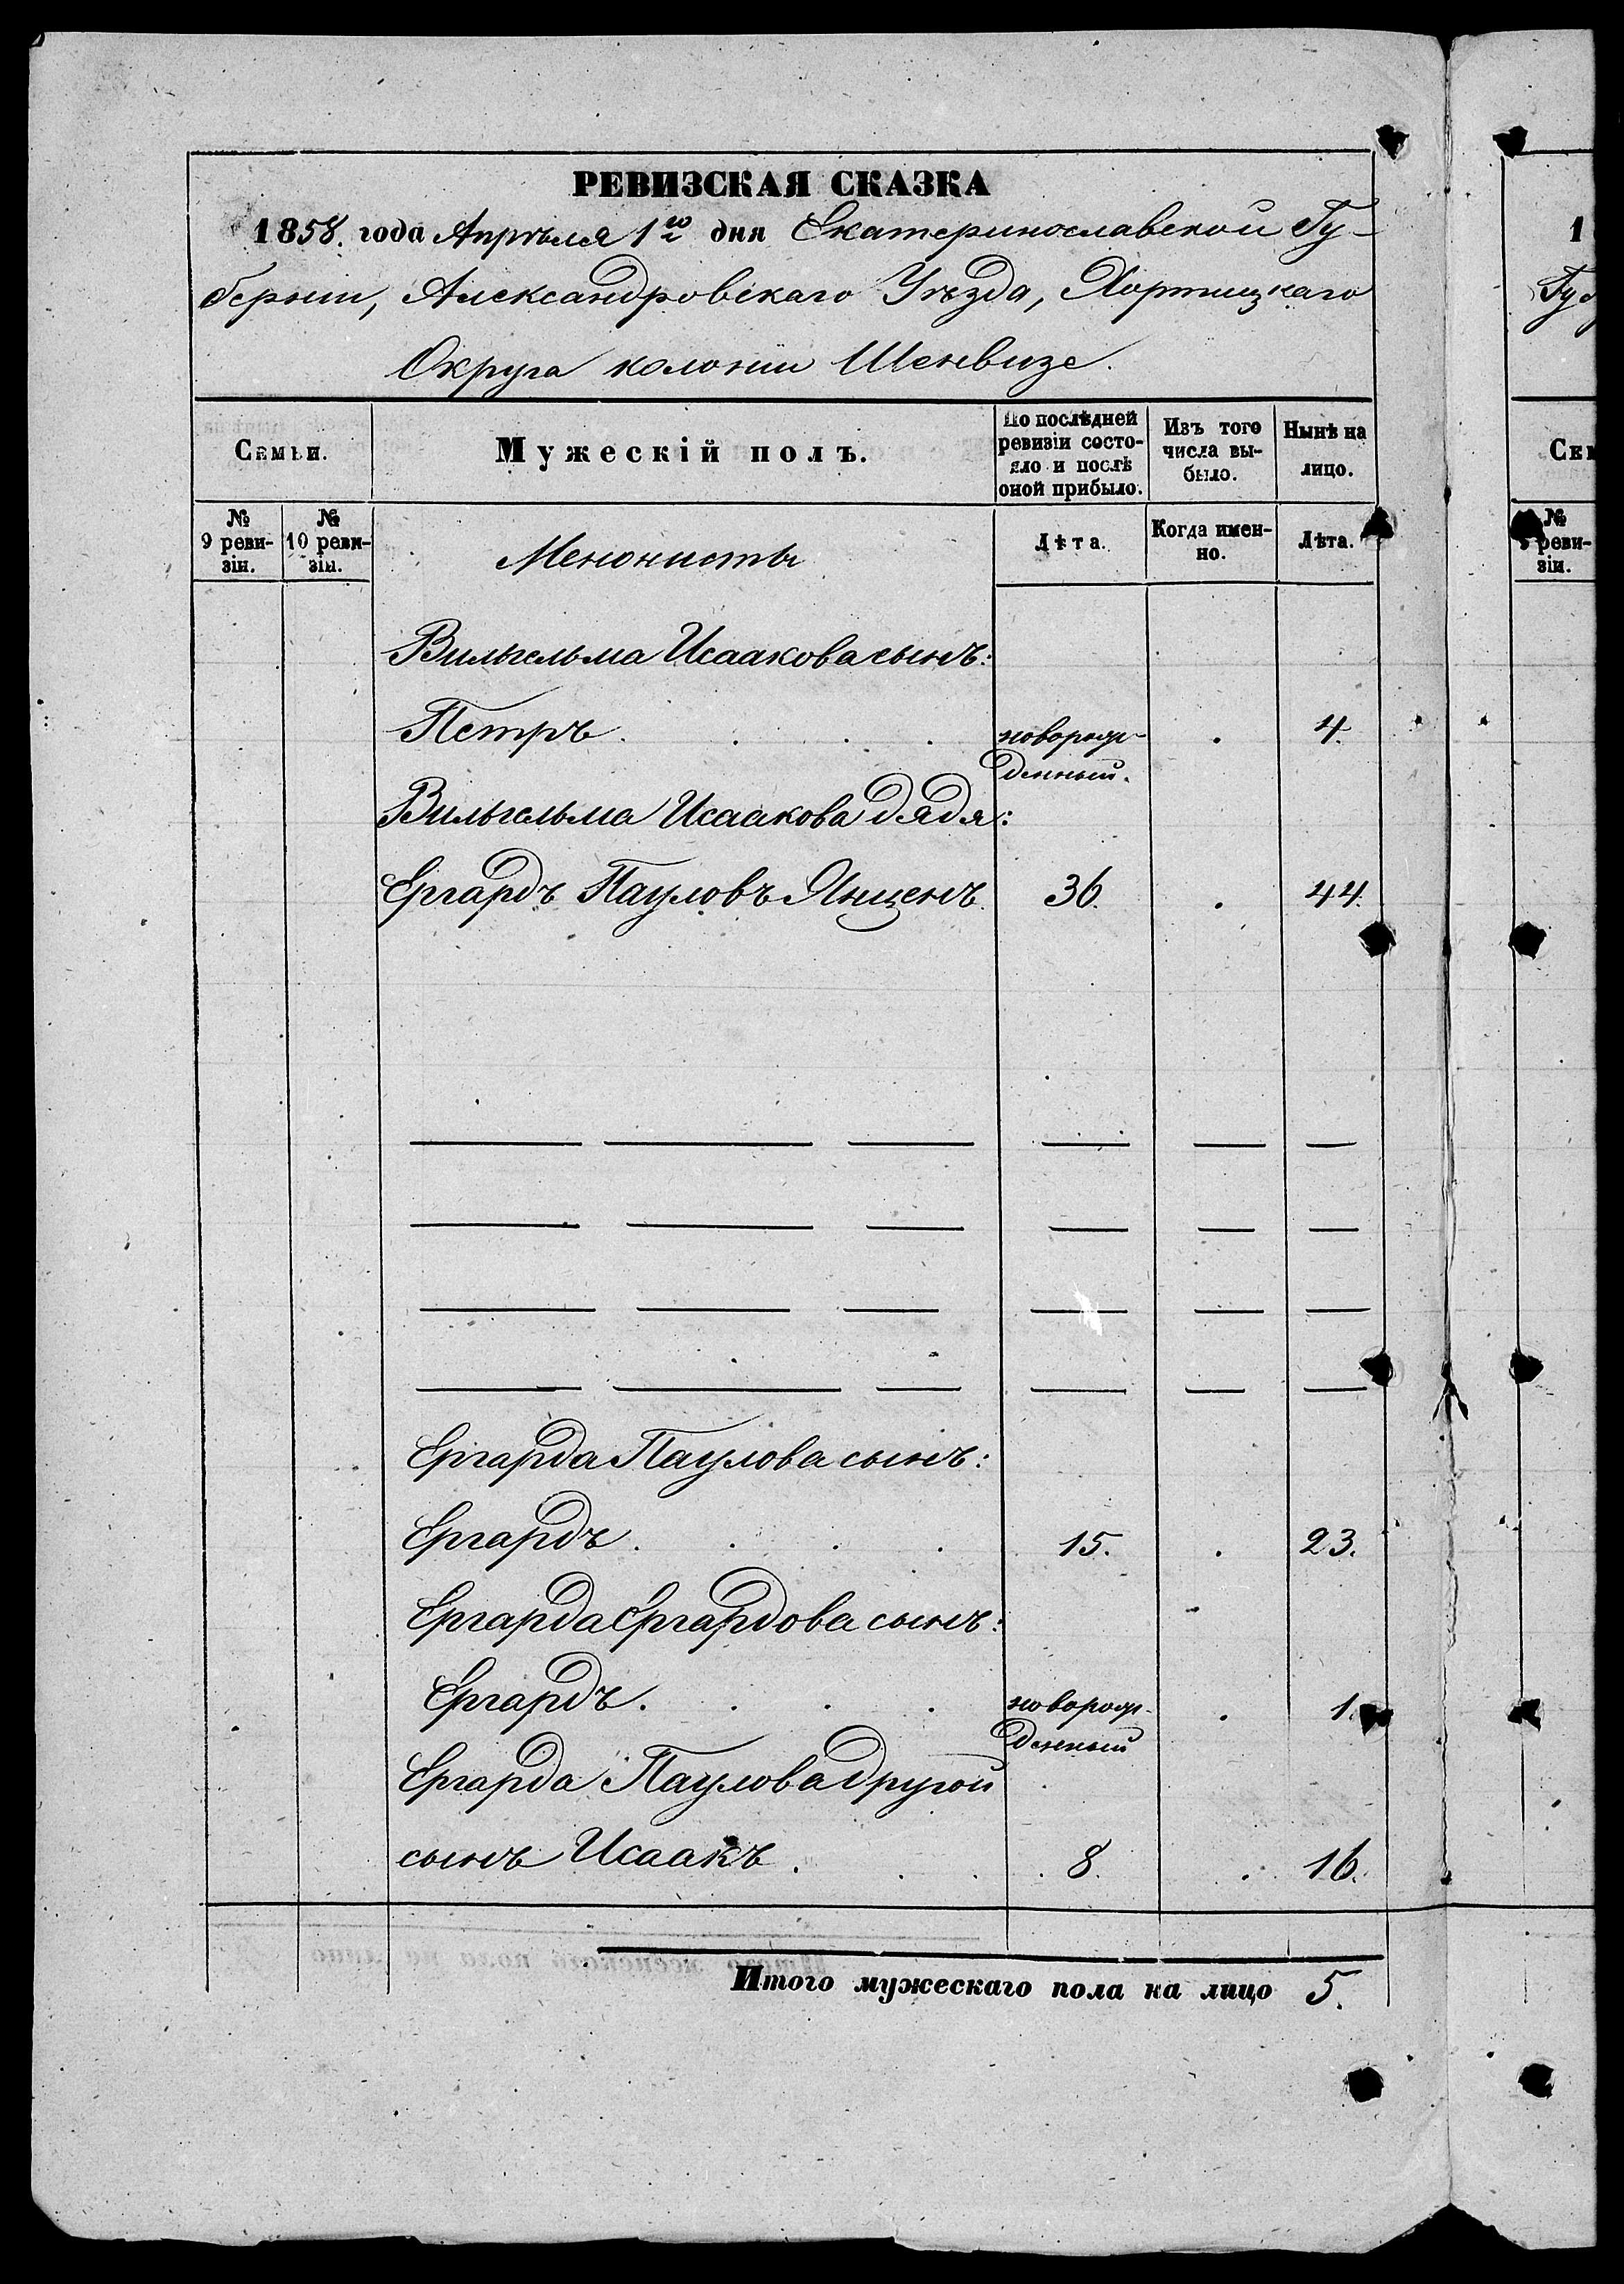 РЕВИЗСКАЯ СКАЗКА
1858. года Апрѣля 1го дня Екатеринославской Гу-
берніи, Александровскаго Уѣзда, Хортицкаго
Округа колоніи Шенвизе.
Семьи.
Мужескій полъ.
По послѣдней
ревизіи состо-
яло и послѣ
оной прибыло.
Изъ того
числа вы-
было.
Нынѣ на
лицо.
№
9 реви-
зіи.
№
10 реви-
зіи.
Менонисты
Лѣта.
Когда имен-
но.
Лѣта.
Вильгельма Исаакова сынъ:
Петръ . . . . новорож- . 4.
денный.
Вильгельма Исаакова дядя:
Ергардъ Пауловъ Янценъ 36. . 44.
Ергарда Паулова сынъ:
Ергардъ . . . . 15. . 23.
Ергарда Ергардова сынъ:
Ергардъ . . . . новорож- . 1.
денный
Ергарда Паулова другой
сынъ Исаакъ . . . 8. . 16.
Итого мужескаго пола на лицо 5.
1
Губ
Сем
№
9 реви-
зіи.